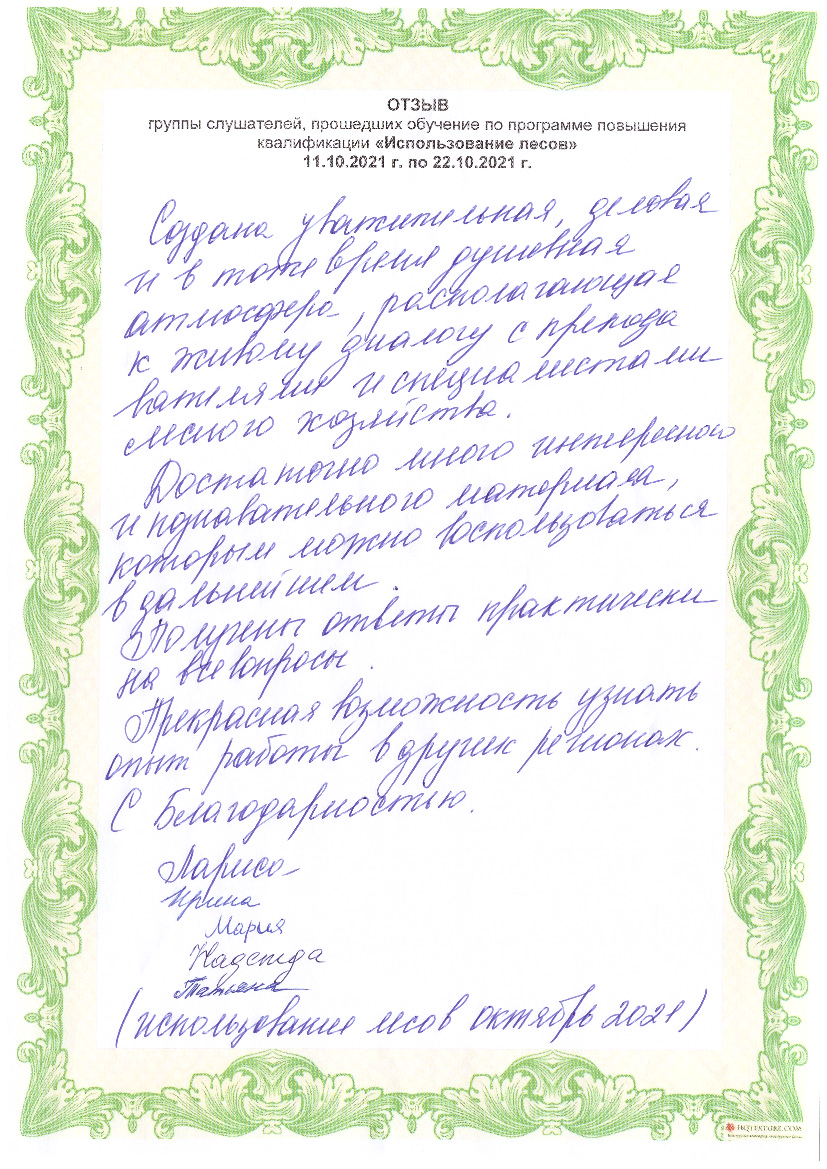 ОТЗЫВ
группы слушателей, прошедших обучение по программе повышения
квалификации «Использование лесов»
11.10.2021 г. по 22.10.2021 г.
Создана уважительная, деловая
и в тоже время душевная
атмосфера, располагающая
к живому диалогу с препода
вателями и специалистами
лесного хозяйства.
Достаточно много интересного
и познавательного материала,
которым можно воспользоваться
в дальнейшем.
Получены ответы практически
на все вопросы.
Прекрасная возможность узнать
опыт работы в других регионах.
С Благодарностью.
Лариса
Ирина
Мария
Надежда
Татьяна
(использование лесов октябрь 2021)
HQTEXTURE.COM